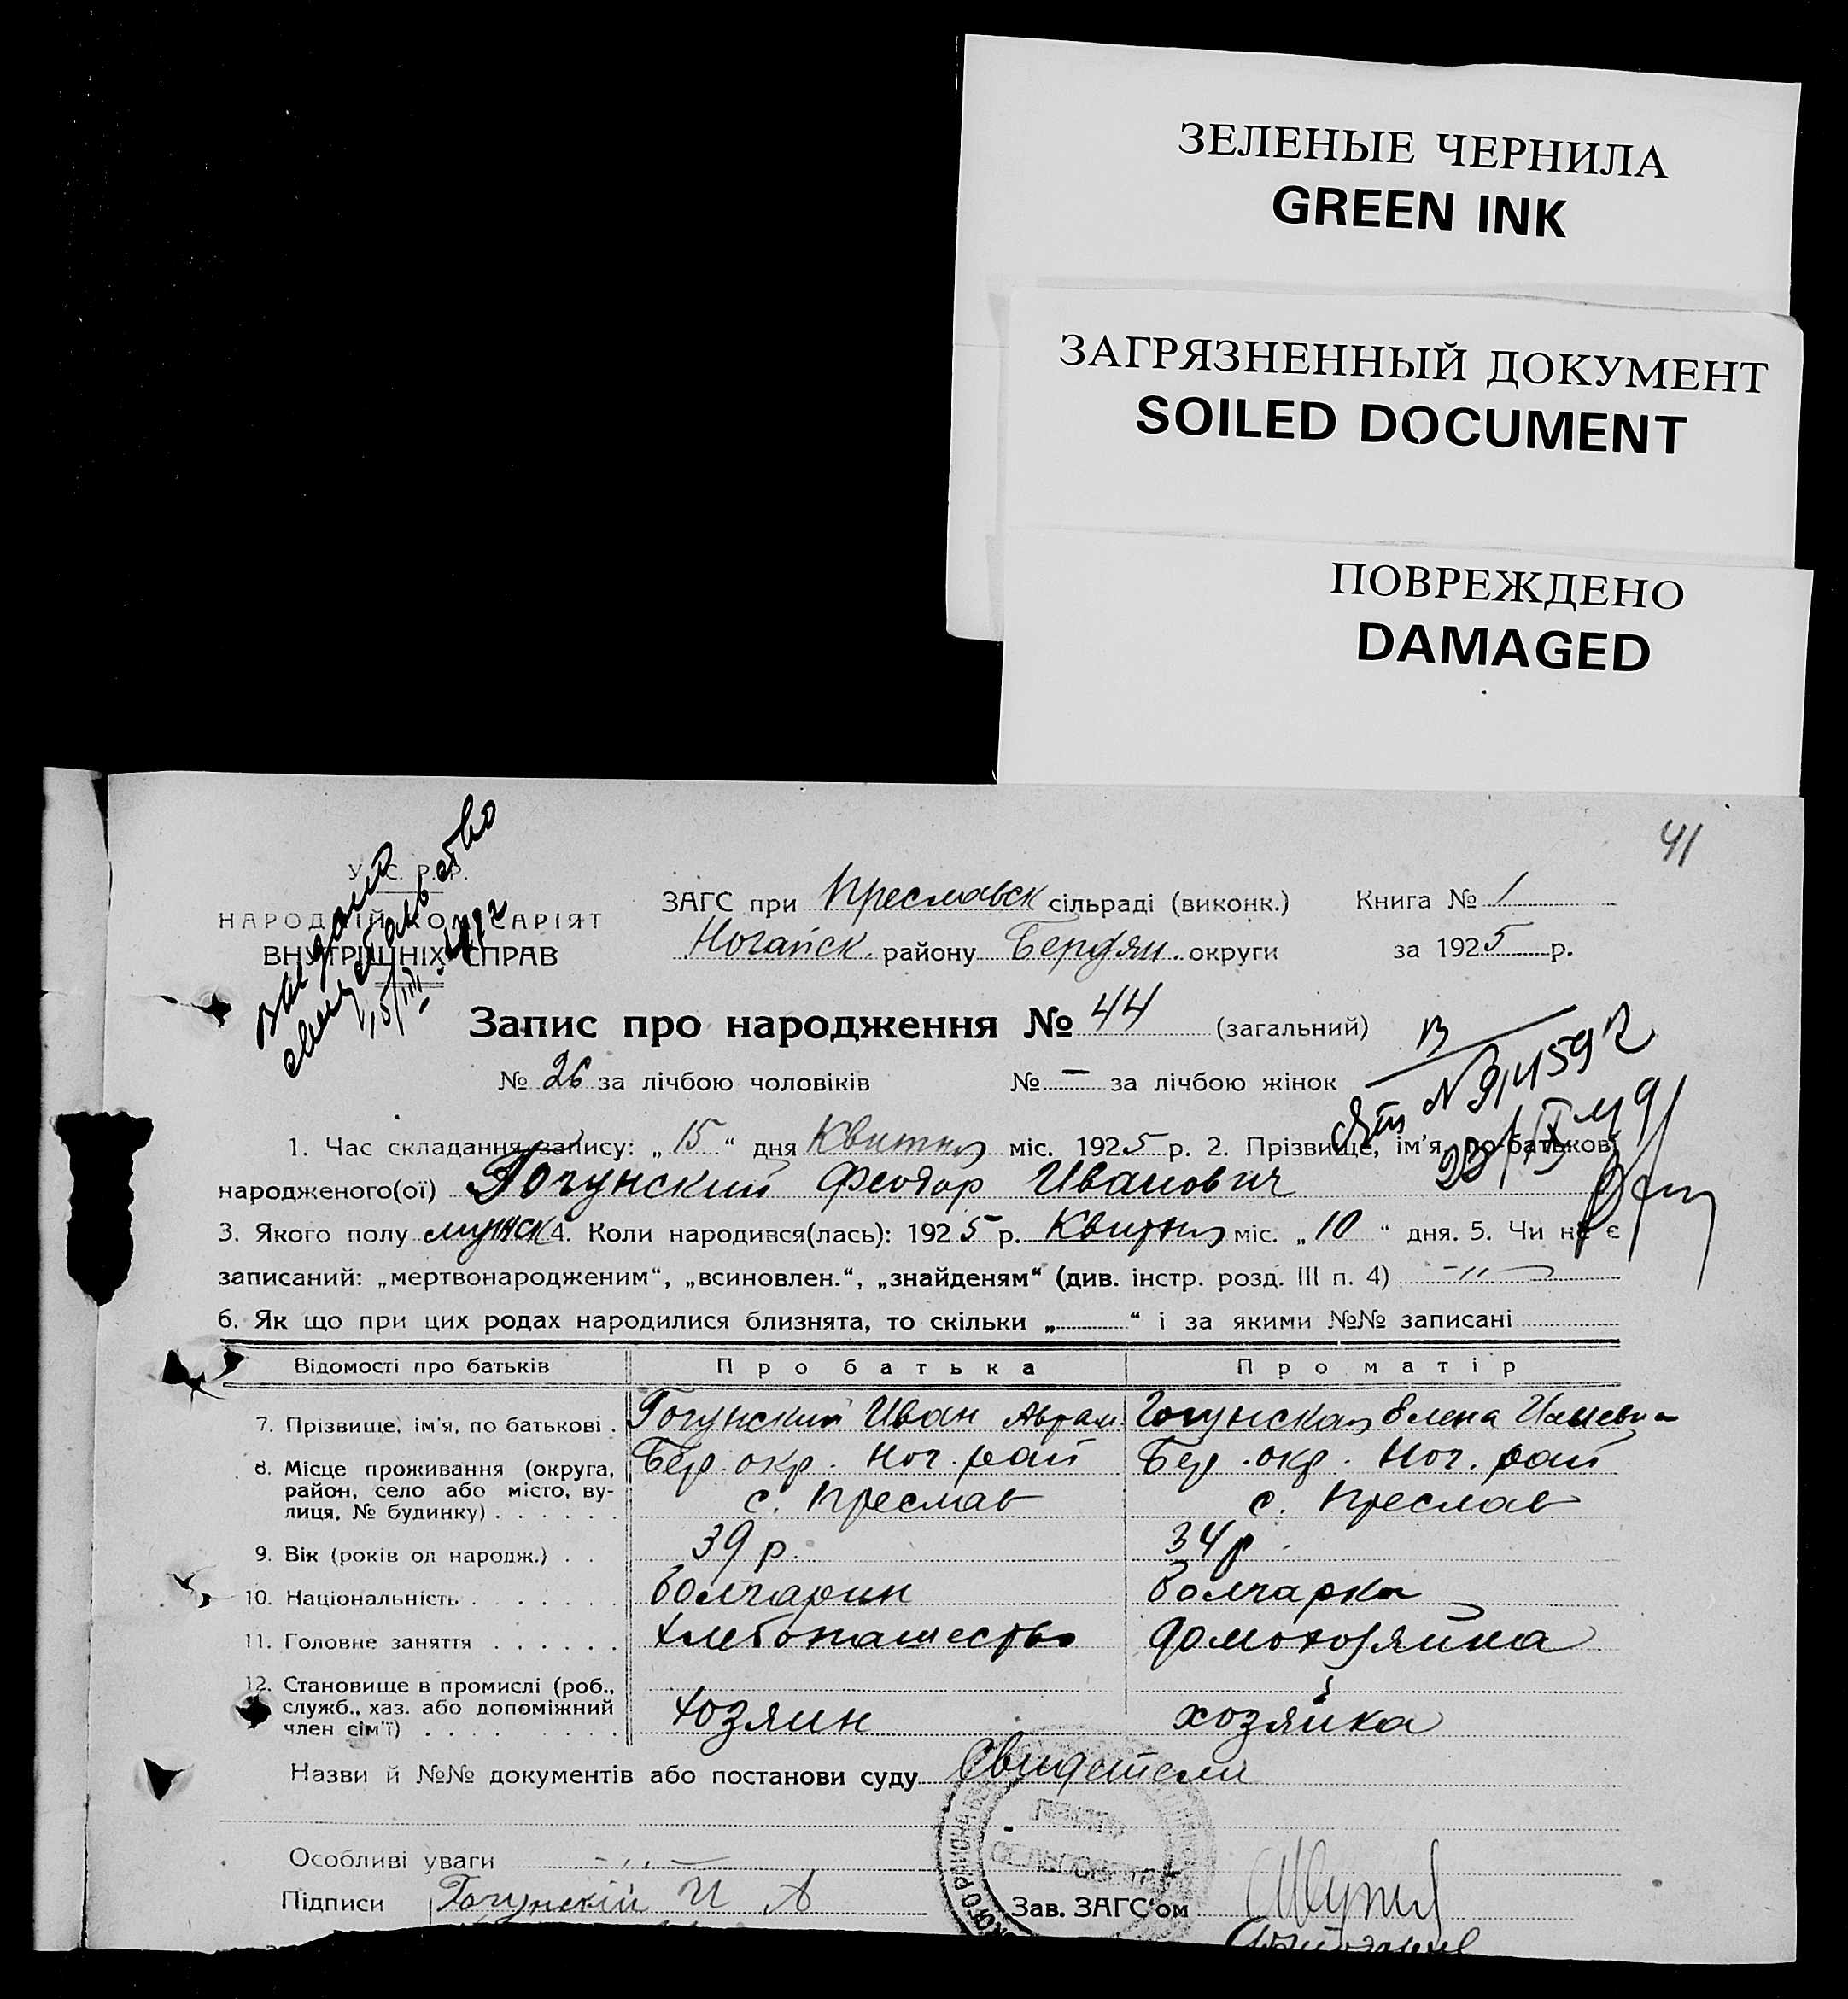 ЗЕЛЕНЫЕ ЧЕРНИЛА
GREEN INK
ЗАГРЯЗНЕННЫЙ ДОКУМЕНТ
SOILED DOCUMENT
ПОВРЕЖДЕНО
DAMAGED
41
У. С. Р. Р.
НАРОДНІЙ КОМІСАРІЯТ
ВНУТРІШНІХ СПРАВ
ЗАГС при Преславск сільраді (виконк.) Книга № 1
Ногайск. району Бердян. округи за 1925 р.
Запис про народження № 44 (загальний)
№ 26 за лічбою чоловіків № — за лічбою жінок
1. Час складання запису: „15“ дня Квитня міс. 1925 р. 2. Прізвище, ім'я, по-батькові
народженого(ої) Гогунский Феодор Иванович
3. Якого полу мужск 4. Коли народився(лась): 1925 р. Квитня міс. „10“ дня. 5. Чи не є
записаний: „мертвонародженим“, „всиновлен.“, „знайденям“ (див. інстр. розд. III п. 4) -〃-
6. Як що при цих родах народилися близнята, то скільки „ “ і за якими №№ записані
Відомості про батьків Про батька Про матір
7. Прізвище, ім'я, по батькові . Гогунский Иван Аврам. Гогунская Елена
8. Місце проживання (округа, район, село або місто, вулиця, № будинку) . . . . . .
Бер. окр. Ног. рай Бер. окр. Ног. рай
с. Преслав с. Преслав
9. Вік (років од народж.) . . 39 р. 34 р.
10. Національність . . . . . . . Болгарин Болгарка
11. Головне заняття . . . . . . Хлебопашество домохозяйка
12. Становище в промислі (роб., служб., хаз. або допоміжний член сім'ї) . . . . . . .
хозяин хозяйка
Назви й №№ документів або постанови суду Свидетели
Особливі уваги -〃-
Підписи Гогунскій И А Зав. ЗАГС'ом